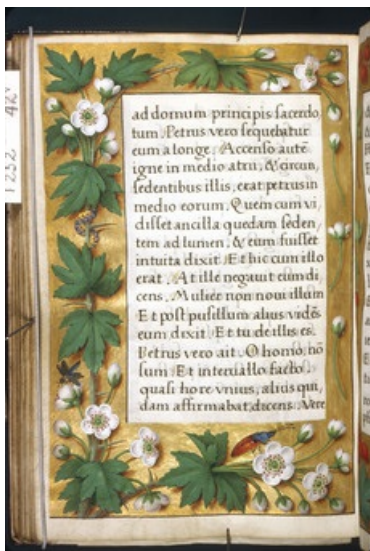 ad domum principis sacerdo
tum. Petrus vero sequebatur
eum a longe. Accenso autē
igne in medio atrii, & circun
sedentibus illis, erat petrus in
medio eorum. Quem cum vi,
disset ancilla quedam seden,
tem ad lumen, & eum fuisset
intuita dixit. Et hic cum illo
erat. At ille negavit eum di
cens. Mulier non novi illum
Et post pusillum alius vidēs
eum dixit. Et tu de illis es.
Petrus vero ait. O homo, nō
sum. Et intervallo facto
quasi hore unius, alius qui,
dam affirmabat, dicens. Vere